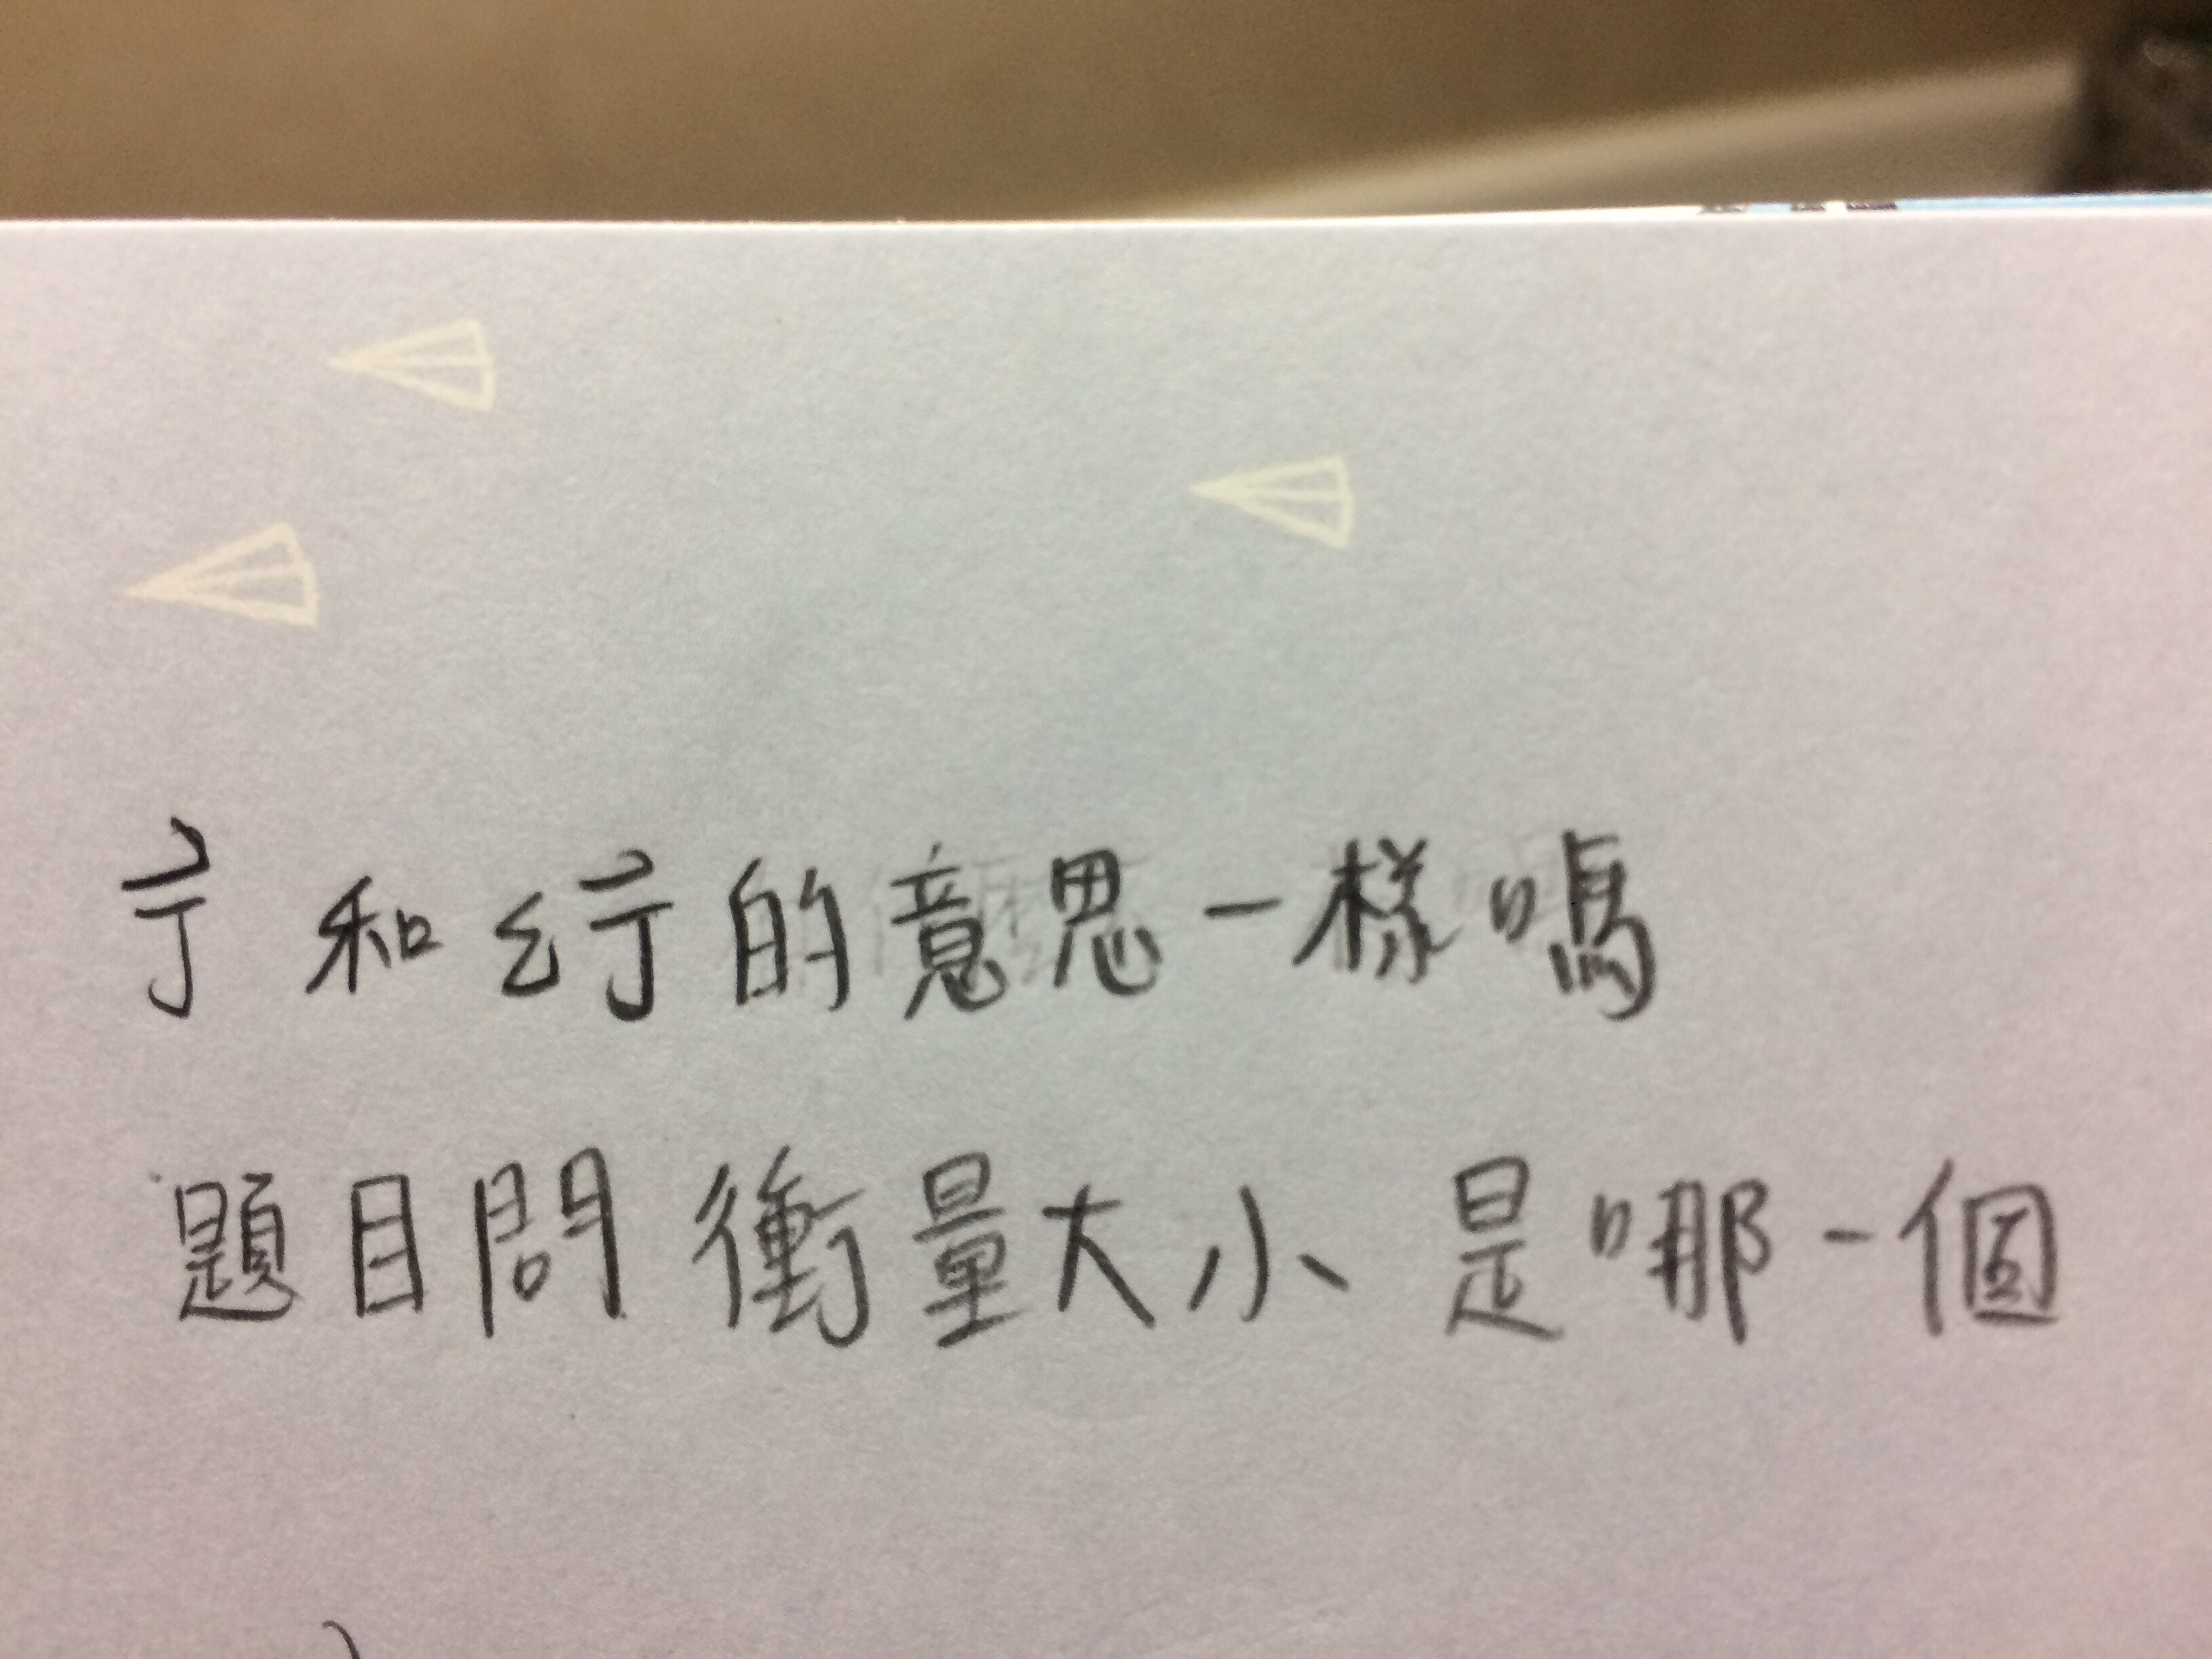 J⃗ 和 ΣJ⃗ 的意思一樣嗎
題目問 衝量大小 是哪一個